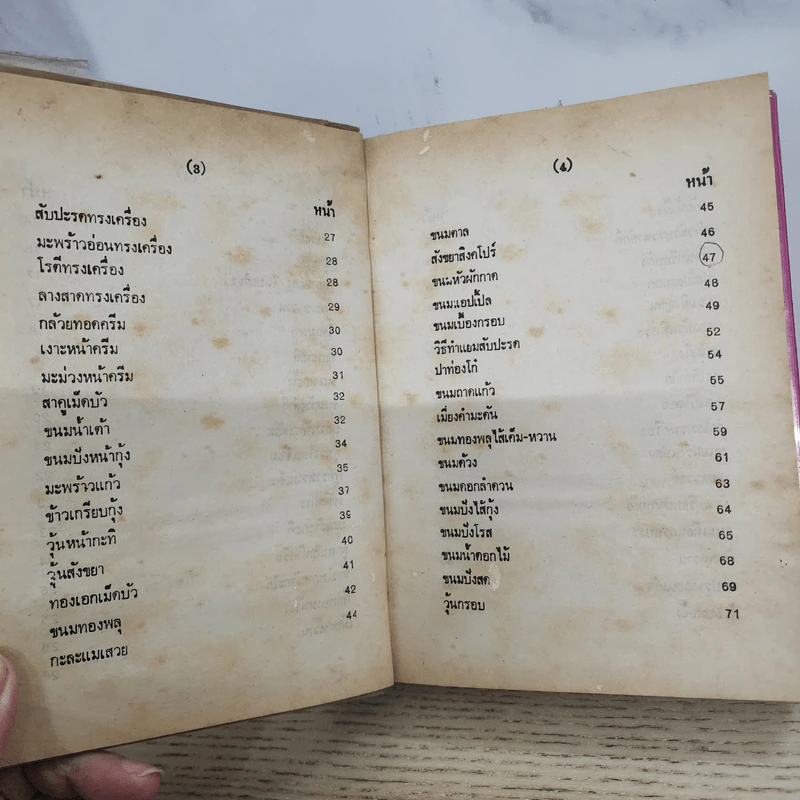 (3)
หน้า
สับปะรดทรงเครื่อง 27
มะพร้าวอ่อนทรงเครื่อง 28
โรตีทรงเครื่อง 28
ลางสาดทรงเครื่อง 29
กล้วยทอดครีม 30
เงาะหน้าครีม 30
มะม่วงหน้าครีม 31
สาคูเม็ดบัว 32
ขนมน้ำเต้า 32
ขนมปังหน้ากุ้ง 34
มะพร้าวแก้ว 35
ข้าวเกรียบกุ้ง 37
วุ้นหน้ากะทิ 39
วุ้นสังขยา 40
ทองเอกเม็ดบัว 41
ขนมทองพลุ 42
กะละแมเสวย 44
(4)
หน้า
ขนมตาล 45
สังขยาสิงคโปร์ 46
ขนมหัวผักกาด 47
ขนมแอปเปิ้ล 48
ขนมเบื้องกรอบ 49
วิธีทำแยมสับปะรด 52
ปาท่องโก๋ 54
ขนมถาดแก้ว 55
เมี่ยงคำมะดัน 57
ขนมทองพลุไส้เค็ม-หวาน 59
ขนมด้วง 61
ขนมดอกลำดวน 63
ขนมปังไส้กุ้ง 64
ขนมปังโรส 65
ขนมน้ำดอกไม้ 68
ขนมปังสด 69
วุ้นกรอบ 71